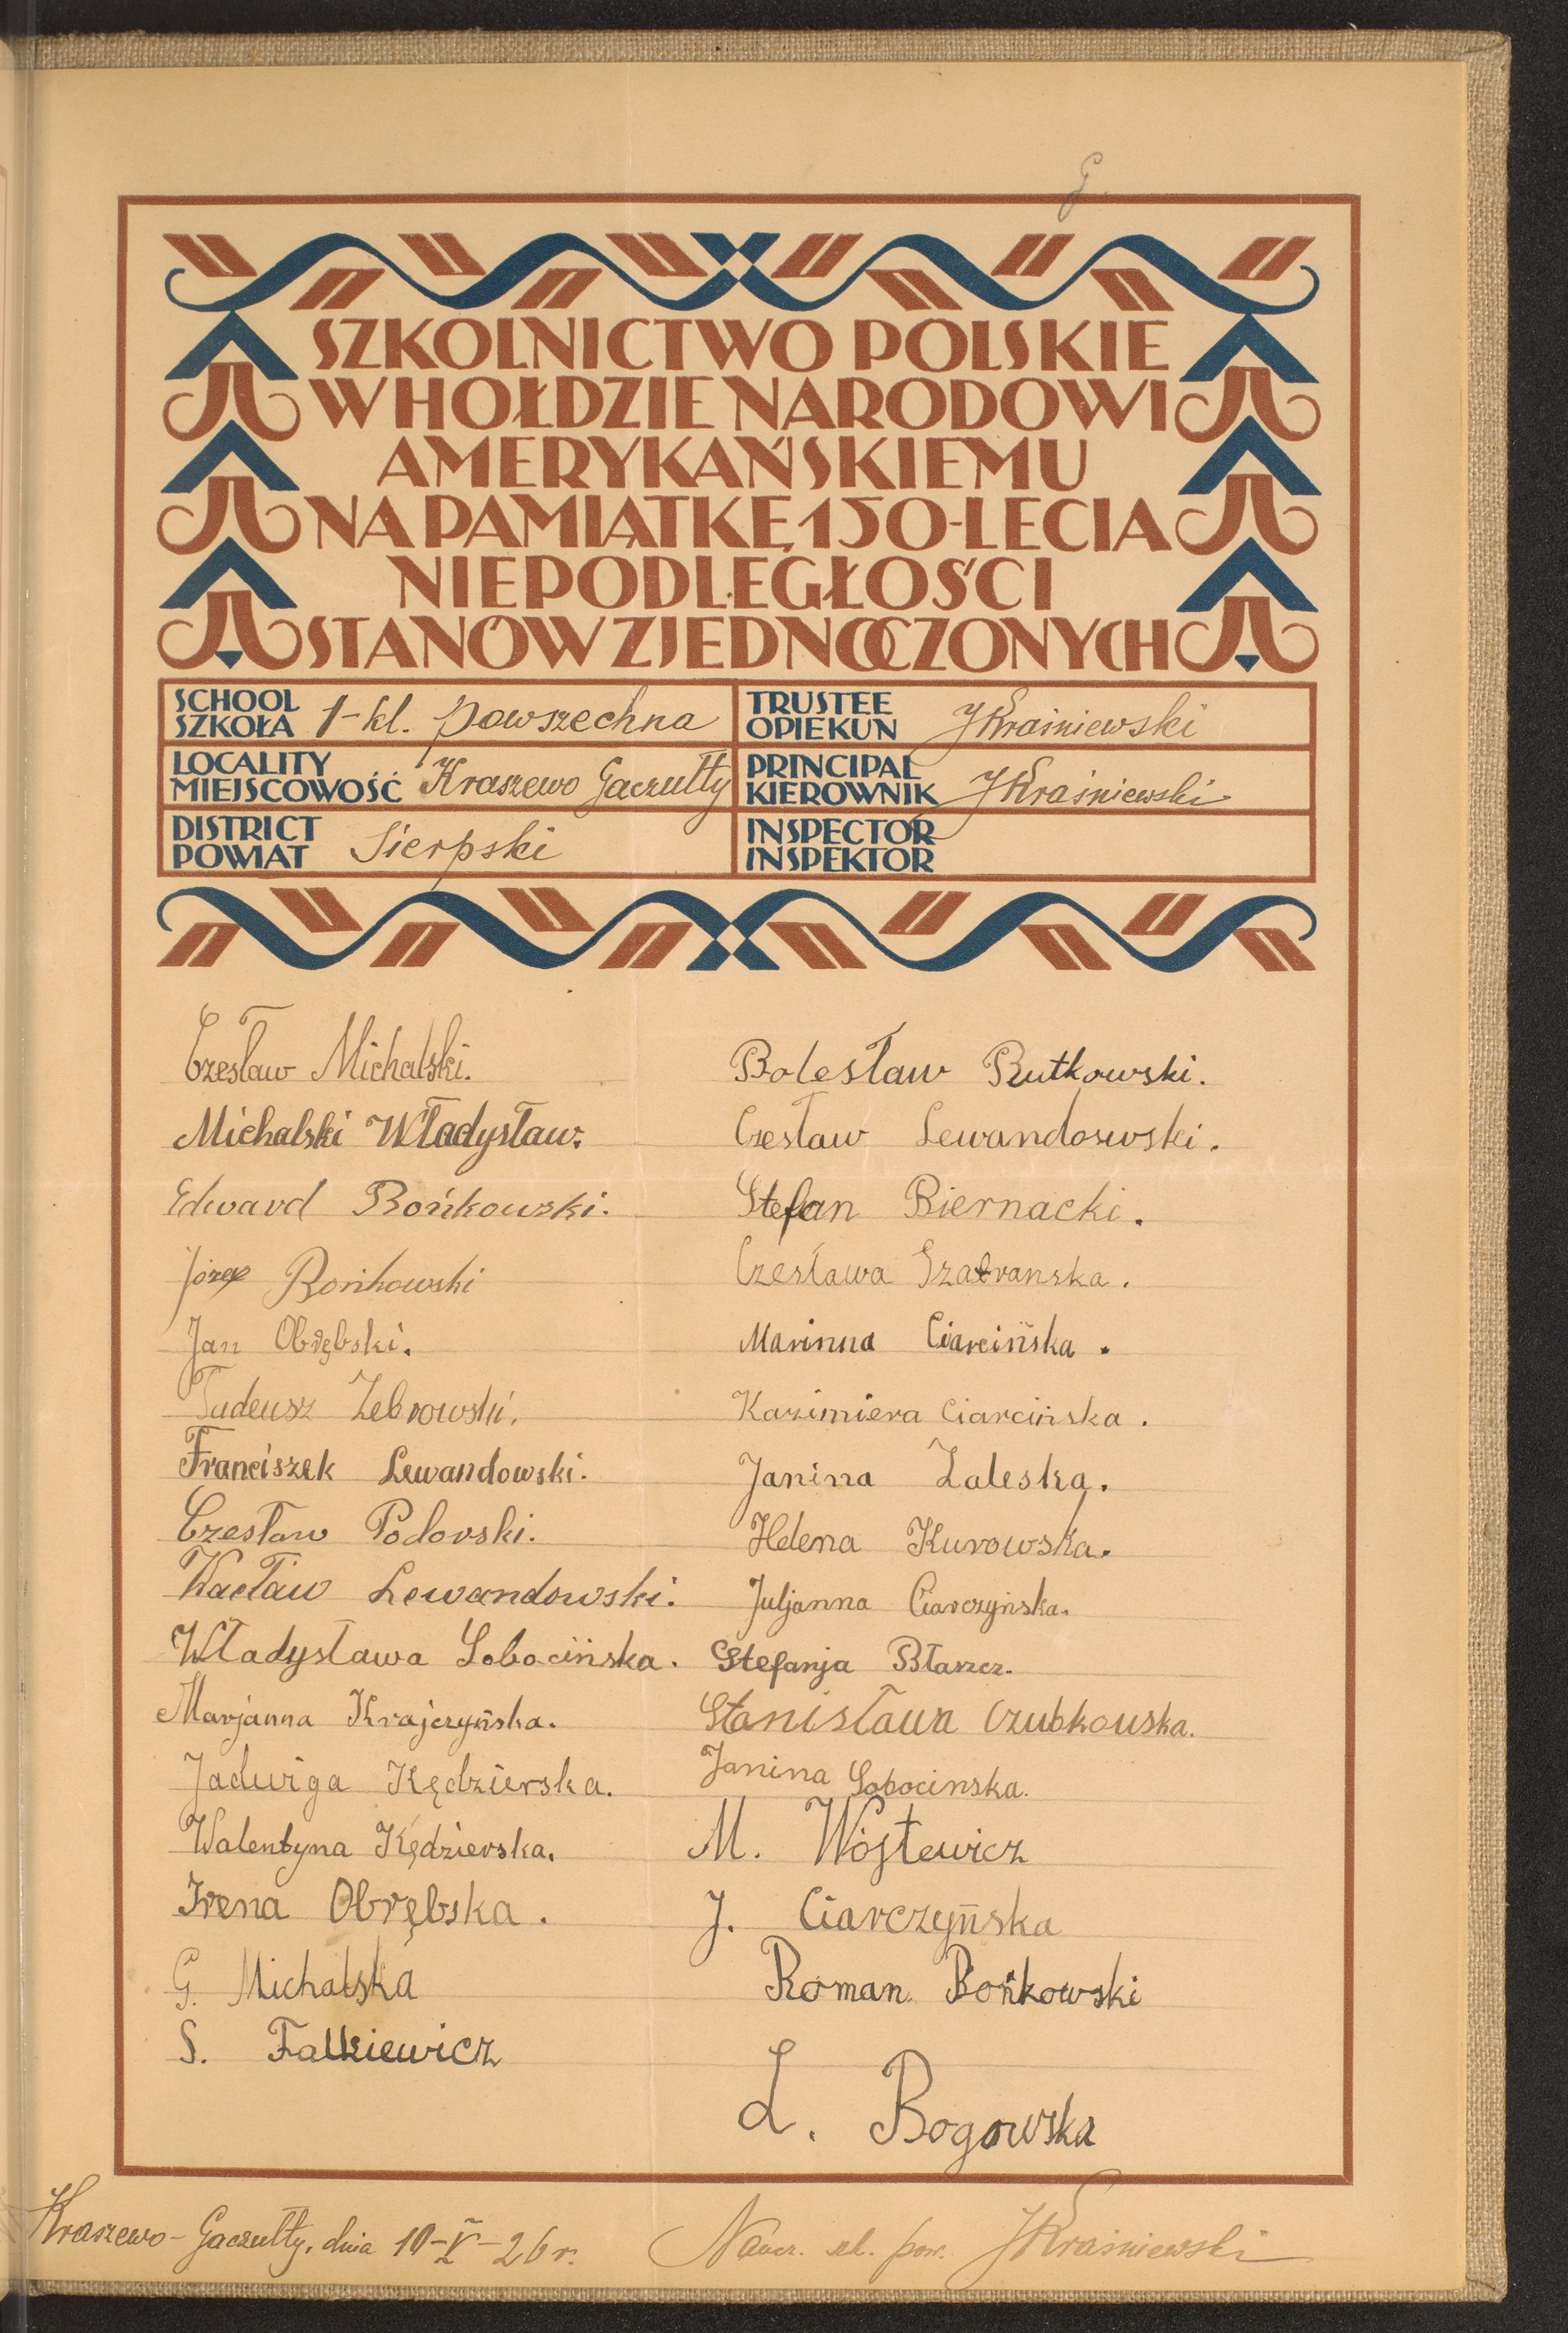 G
SZKOLNICTWO POLSKIE
W HOŁDZIE NARODOWI
AMERYKAŃSKIEMU
NA PAMIĄTKĘ 150-LECIA
NIEPODLEGŁOŚCI
STANÓW ZJEDNOCZONYCH
SCHOOL
SZKOŁA 1-kl. powszechna
TRUSTEE
OPIEKUN JKraśniewski
LOCALITY
MIEJSCOWOŚĆ Kraszewo Gaczułty
PRINCIPAL
KIEROWNIK JKraśniewski
DISTRICT
POWIAT Sierpski
INSPECTOR
INSPEKTOR
Czesław Michalski.
Michalski Władysław.
Edward Bońkowski.
Józef Bońkowski
Jan Obrębski.
Tadeusz Żebrowski.
Franciszek Lewandowski.
Czesław Podorski.
Wacław Lewandowski.
Władysława Sobocińska.
Marjanna Krajczyńska.
Jadwiga Kędzierska.
Walentyna Kędzierska.
Irena Obrębska.
G. Michalska
S. Falkiewicz
Bolesław Rutkowski.
Czesław Lewandoswski.
Stefan Biernacki.
Czesława Szatranska.
Marinna Ciarcińska.
Kazimiera Ciarcińska.
Janina Zaleska.
Helena Kurowska.
Juljanna Ciarczyńska.
Stefanja Błaszcz.
Stanisława Czubkowska.
Janina Sobocinska.
M. Wójtewicz
J. Ciarczyńska
Roman Bońkowski
L. Bogowska
Kraszewo-Gaczułty, dnia 10-V-26 r.
Naucz. szk. pow. JKraśniewski